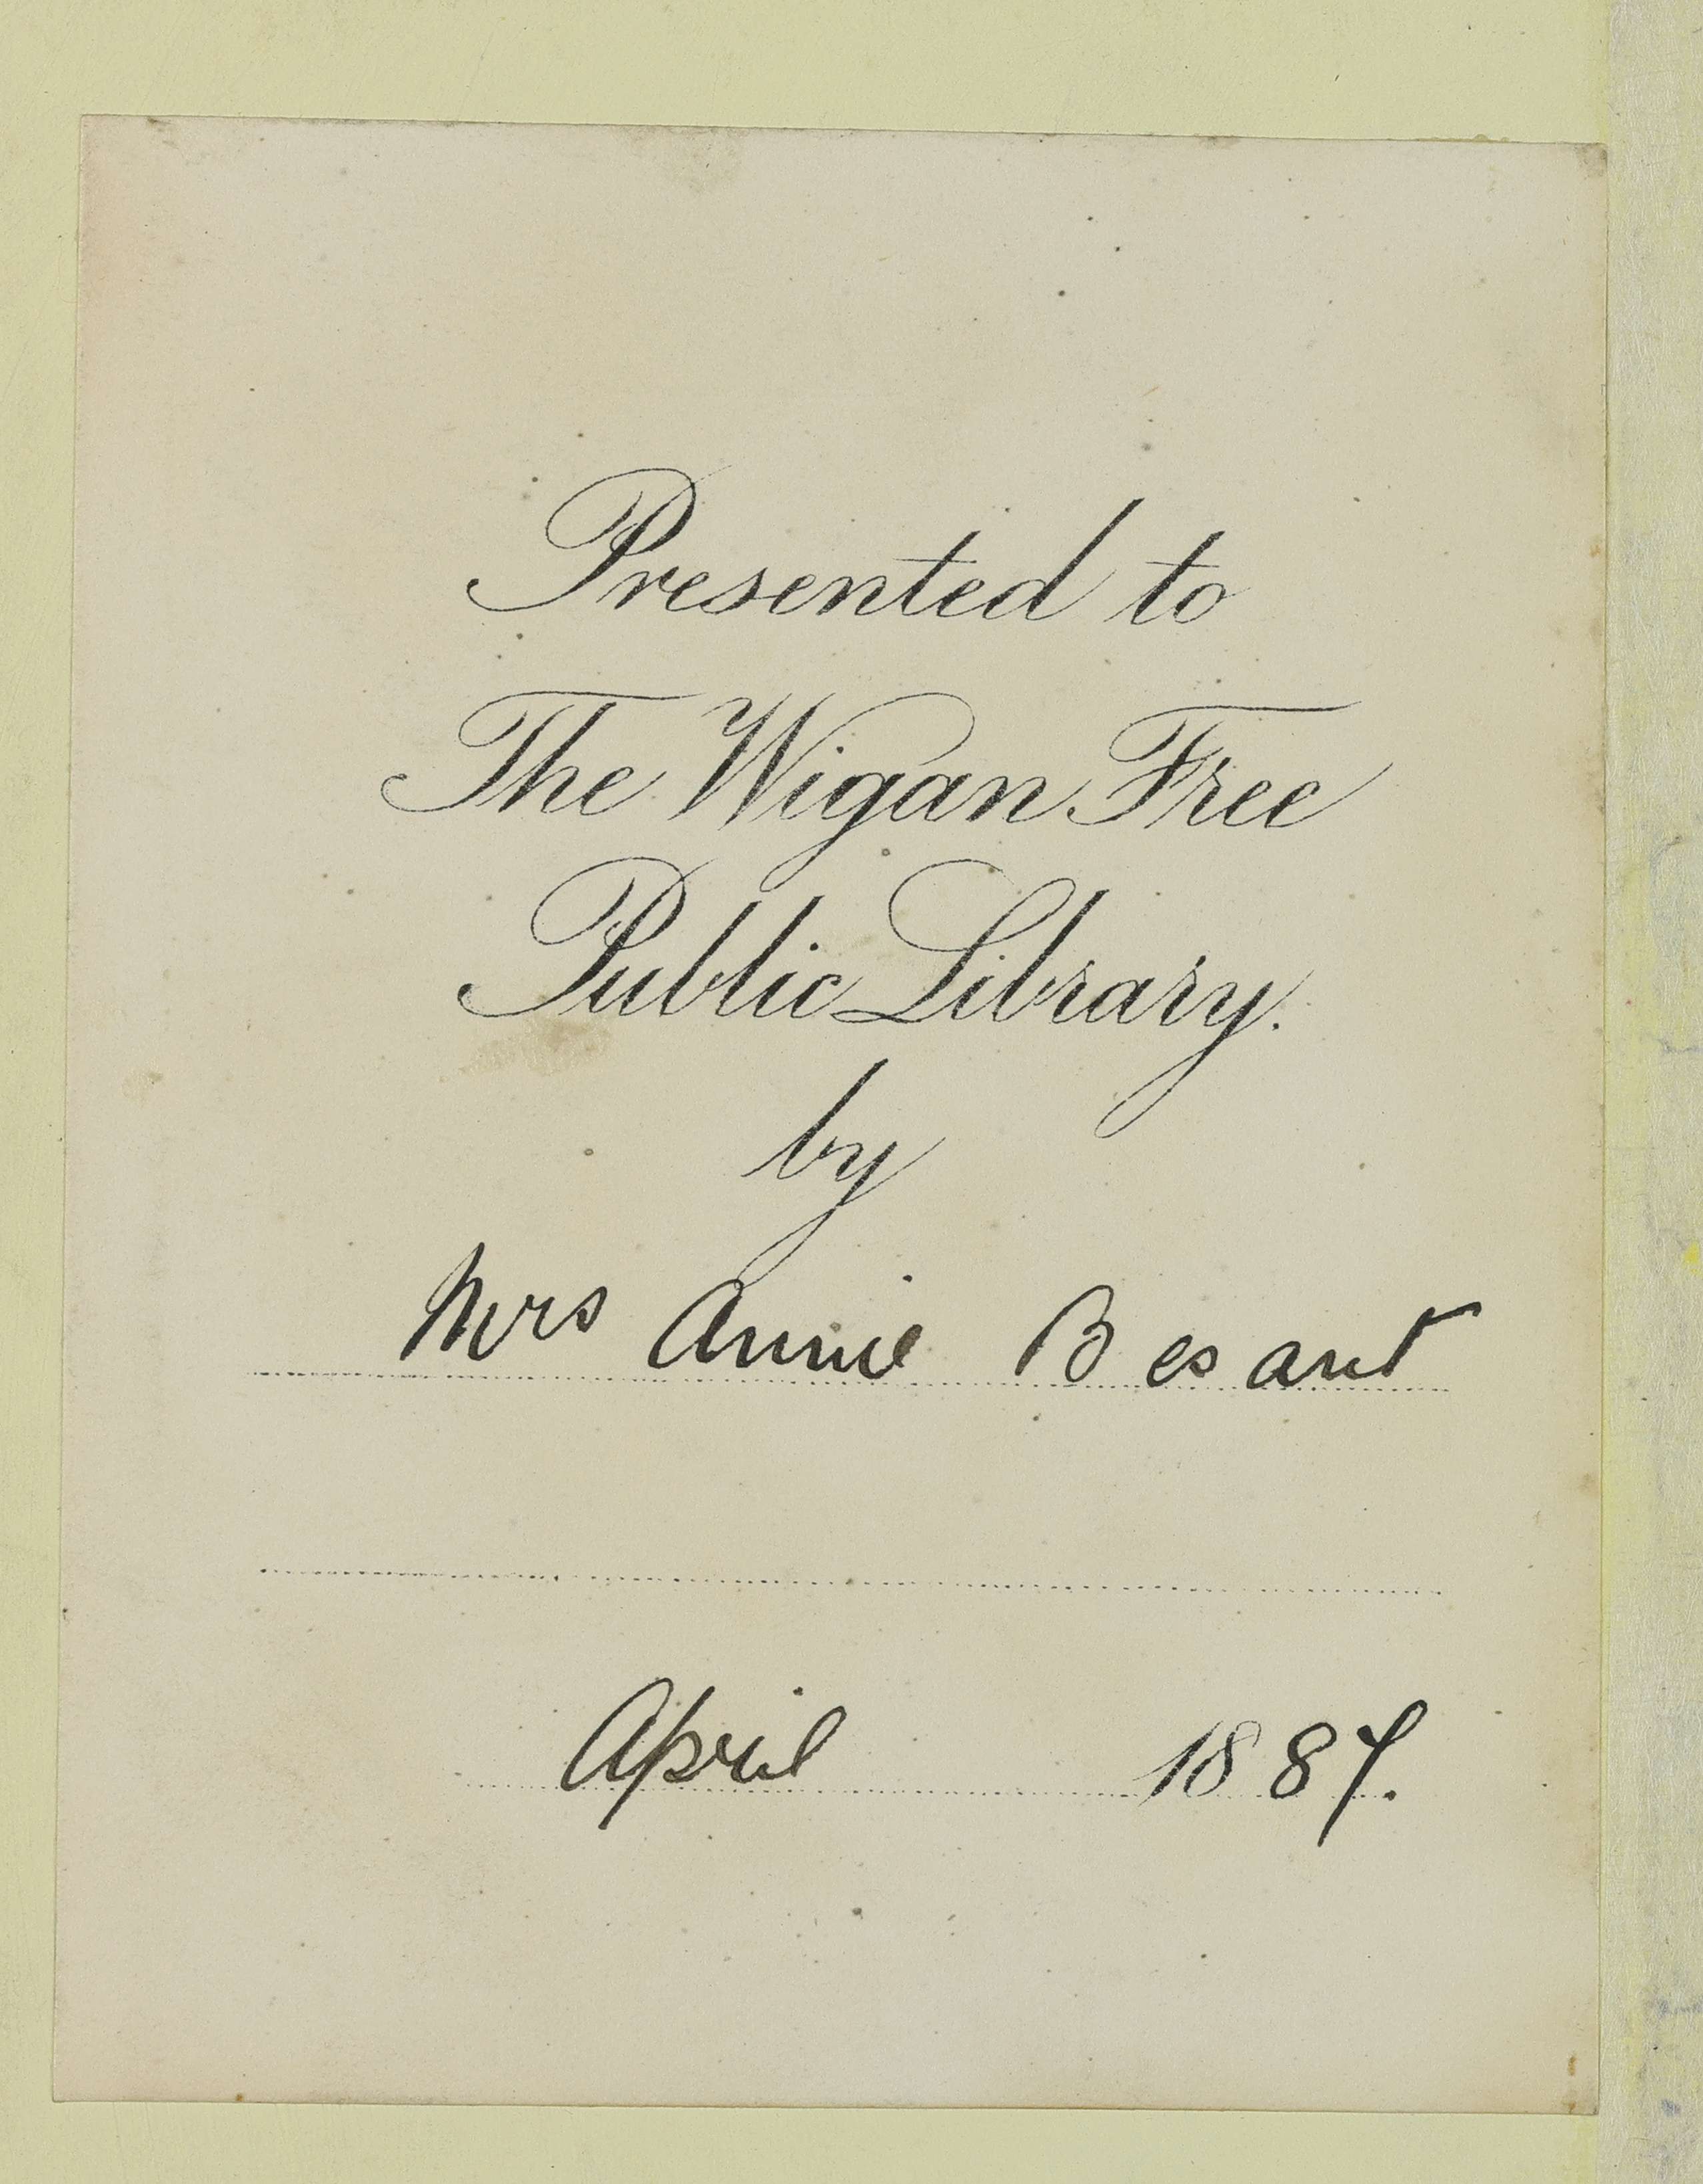 Presented to
The Wigan Free
Public Library.
by
Mrs Annie Besant
April 1887.